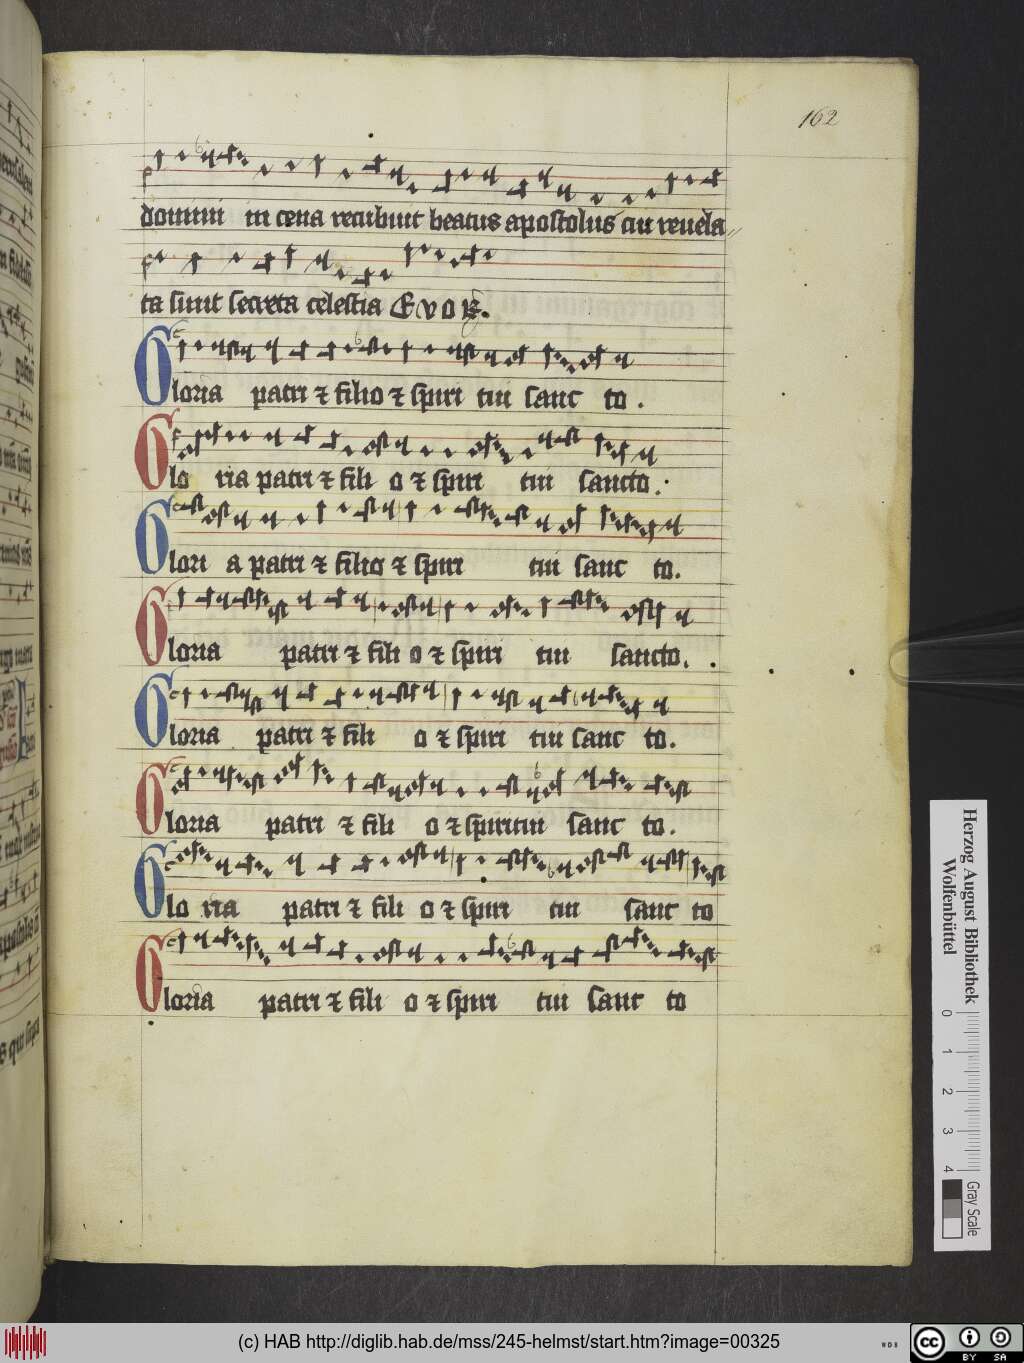 162
domini in cena recubuit beatus apostolus cui reuela
ta sunt secreta celestia E v o
Gloria patri ⁊ filio ⁊ spiri tui sanc to.
Glo ria patri ⁊ fili o ⁊ spiri tui sancto.
Glori a patri ⁊ filio ⁊ spiri tui sanc to.
Gloria patri ⁊ fili o ⁊ spiri tui sancto.
Gloria patri ⁊ fili o ⁊ spiri tui sanc to.
Gloria patri ⁊ fili o ⁊ spiritui sanc to.
Glo ria patri ⁊ fili o ⁊ spiri tui sanc to
Gloria patri ⁊ fili o ⁊ spiri tui sanc to
Herzog August Bibliothek
Wolfenbüttel
0 1 2 3 4
Gray Scale
(c) HAB http://diglib.hab.de/mss/245-helmst/start.htm?image=00325
WDB
cc BY SA